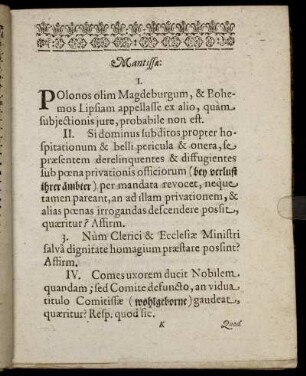 Mantissa.
I.
POlonos olim Magdeburgum, & Bohe-
mos Lipsiam appellasse ex alio, quàm
subjectionis jure, probabile non est.
II. Si dominus subditos propter ho-
spitationum & belli pericula & onera, se
præsentem derelinquentes & diffugientes
sub pœna privationis officiorum (bey verlust
ihrer ämbter) per mandata revocet, neque
tamen pareant, an ad illam privationem, &
alias pœnas irrogandas descendere possit,
quæritur? Affirm.
3. Nùm Clerici & Ecclesiæ Ministri
salvâ dignitate homagium præstare possint?
Affirm.
IV. Comes uxorem ducit Nobilem
quandam; sed Comite defuncto, an vidua
titulo Comitissæ (wohlgeborne) gaudeat,
quæritur? Resp. quod sic.
K Quod